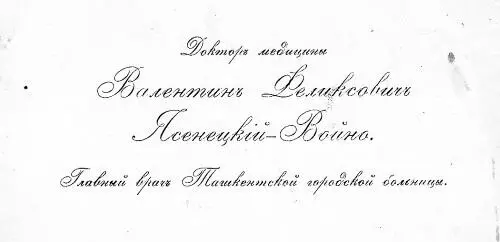 Докторъ медицины
Валентинъ Феликсовичъ
Ясенецкій-Войно.
Главный врачъ Ташкентской городской больницы.